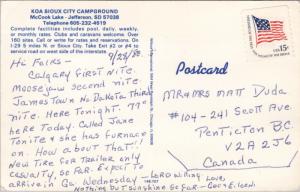 KOA SIOUX CITY CAMPGROUND
McCook Lake - Jefferson, SD 57038
Telephone 605-232-4619
Complete facilities includes pool, daily, weekly,
or monthly rates. Clubs and caravans welcome. Over
160 sites. Call or write for rates and reservations. On
I-29 5 miles N. of Sioux City. Take Exit #2 or #4 to
service road on west side of the interstate.
9/28/80
Hi Folks -
Calgary First Nite.
Moosejaw second nite
Jamestown No Dakota Third
nite. Here Tonight. 79°
here Today. Called Jane
Tonite & she has furnace
on. How about That!!
New Tire for Trailer only
casualty. So Far. Expect To
arrive in Ga Wednesday -
Nothing but sunshine so far -
Postcard
USA 15c
Mr & Mrs Matt Dude
#104-241 Scott Ave.
Penticton B.C.
V2A 2J6
Canada